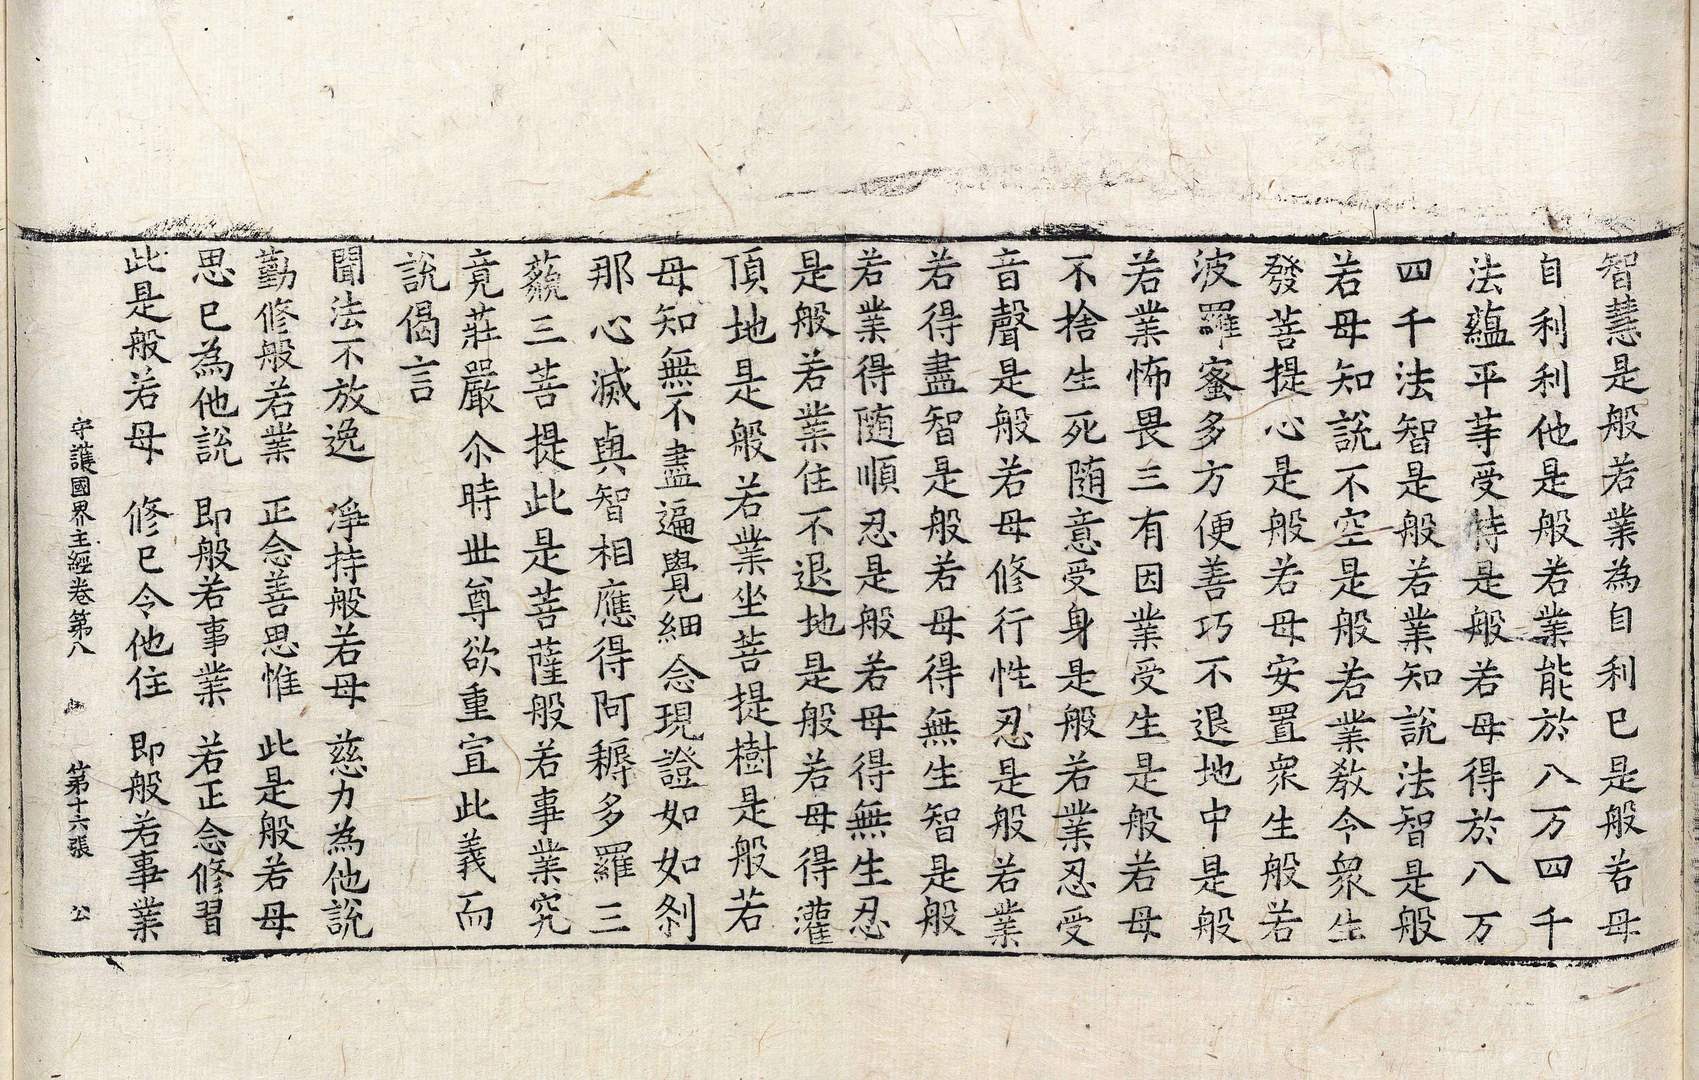 智慧是般若業為自利已是般若母
自利利他是般若業能於八万四千
法蘊平等受持是般若母得於八万
四千法智是般若業知說法智是般
若母知說不空是般若業教令衆生
發菩提心是般若母安置衆生般若
波羅蜜多方便善巧不退地中是般
若業怖畏三有因業受生是般若母
不捨生死隨意受身是般若業忍受
音聲是般若母修行性忍是般若業
若得盡智是般若母得無生智是般
若業得隨順忍是般若母得無生忍
是般若業住不退地是般若母得灌
頂地是般若業坐菩提樹是般若
母知無不盡遍覺細念現證如如剎
那心滅與智相應得阿耨多羅三
藐三菩提此是菩薩般若事業究
竟莊嚴尒時世尊欲重宣此義而
說偈言
聞法不放逸 淨持般若母 慈力為他說
勤修般若業 正念善思惟 此是般若母
思已為他說 即般若事業 若正念修習
此是般若母 修已令他住 即般若事業
守護國界主經卷第八 第十六張 公